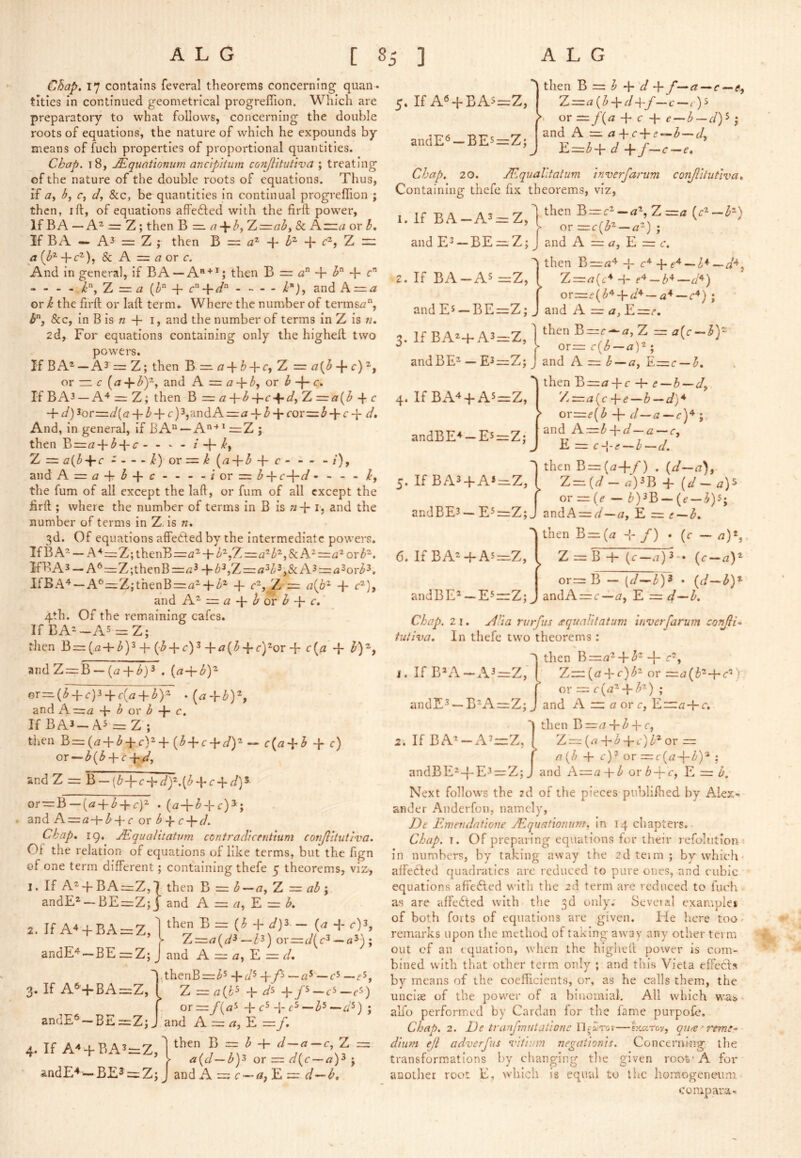 A L G [ 85 ] A L G
Chap. 17 contains ſeveral theorems concerning quan-
tities in continued geometrical progreſſion. Which are
preparatory to what follows, concerning the double
roots of equations, the nature of which he expounds by
means of ſuch properties of proportional quantities.
Chap. 18, Æquationum ancipitum conſtitutiva; treating
of the nature of the double roots of equations. Thus,
if a, b, c, d, &c, be quantities in continual progreſſion;
then, 1ſt, of equations affected with the firſt power,
If BA − A² = Z; then B = a + b, Z=ab, & A=a or b.
If BA − A³ = Z; then B = a² + b² + c², Z =
a (b² + c²), & A = a or c.
And in general, if BA − Aⁿ⁺¹; then B = aⁿ + bⁿ + cⁿ
- - - - kⁿ, Z = a (bⁿ + cⁿ + dⁿ - - - - kⁿ), and A = a
or k the firſt or laſt term. Where the number of terms aⁿ,
bⁿ, &c, in B is n + 1, and the number of terms in Z is n.
2d, For equations containing only the higheſt two
powers.
If BA² − A³ = Z; then B = a + b + c, Z = a(b + c)²,
or = c (a + b)², and A = a + b, or b + c.
If BA³ − A⁴ = Z; then B = a + b + c + d, Z = a(b + c
+ d)³ or=d(a + b + c)³, and A = a + b + c or=b + c + d.
And, in general, if BAⁿ − Aⁿ⁺¹ = Z;
then B=a+b+c - - - - i + k,
Z = a(b+c - - - - k) or = k (a + b + c - - - - i),
and A = a + b + c - - - - i or = b + c + d - - - - k,
the ſum of all except the laſt, or ſum of all except the
firſt; where the number of terms in B is n+1, and the
number of terms in Z is n.
3d. Of equations affected by the intermediate powers.
If BA² − A⁴=Z; then B=a²+b², Z=a²b², & A²=a² or b².
If BA³ − A⁶=Z; then B=a³+b³, Z=a³b³, & A³=a³ or b³.
If BA⁴ − A⁶=Z; then B=a²+b² + c², Z = a(b² + c²),
and A² = a + b or b + c.
4th. Of the remaining caſes.
If BA² − A⁵ = Z;
then B=(a+b)³ + (b+c)³ + a(b+c)² or + c(a + b)²,
and Z=B − (a+b)³ . (a+b)²
or=(b+c)³ + c(a+b)² . (a+b)²,
and A=a + b or b + c.
If BA³ − A⁵ = Z;
then B=(a+b+c)² + (b+c+d)² − c(a+b + c)
or − b(b + c + d,
and Z = B − (b+c+d)².(b+c+d)³
or=B − (a+b+c)² . (a+b+c)³;
and A=a+b+c or b+c+d.
Chap. 19. Æqualitatum contradicentium conſtitutiva.
Of the relation of equations of like terms, but the ſign
of one term different; containing theſe 5 theorems, viz,
1. If A² + BA=Z, then B = b − a, Z = ab;
and E² − BE=Z; and A = a, E = b.
2. If A⁴ + BA=Z, then B = (b + d)³ − (a + c)³,
Z=a(d³ − b³) or=d(c³ − a³);
and E⁴ − BE=Z; and A = a, E = d.
3. If A⁶+BA=Z, then B=b⁵ + d⁵ + f⁵ − a⁵ − c⁵ − e⁵,
Z = a(b⁵ + d⁵ + f⁵ − c⁵ − e⁵)
or=f(a⁵ + c⁵ + e⁵ − b⁵ − d⁵);
and E⁶ − BE=Z; and A = a, E = f.
4. If A⁴ + BA³=Z, then B = b + d − a − c, Z =
a(d − b)³ or = d(c − a)³;
and E⁴ − BE³ = Z; and A = c − a, E = d − b.
5. If A⁶ + BA⁵=Z, then B = b + d + f − a − c − e,
Z=a(b+d+f − c − e)⁵
or =f(a + c + e − b − d)⁵;
and E⁶ − BE⁵=Z; and A = a + c + e − b − d,
E=b + d + f − c − e.
Chap. 20. Æqualitatum inverſarum conſtitutiva.
Containing theſe ſix theorems, viz,
1. If BA − A³ = Z, then B=c² − a², Z = a (c² − b²)
or =c(b² − a²);
and E³ − BE = Z; and A = a, E = c.
2. If BA − A⁵ = Z, then B=a⁴ + c⁴ + e⁴ − b⁴ − d⁴,
Z=a(c⁴ + e⁴ − b⁴ − d⁴)
or=e(b⁴ + d⁴ − a⁴ − c⁴);
and E⁵ − BE=Z; and A = a, E=e.
3. If BA²+A³=Z, then B=c − a, Z = a(c − b)²
or= c(b − a)²;
and BE² − E³=Z; and A = b − a, E=c − b.
4. If BA⁴ + A⁵=Z, then B=a + c + e − b − d,
Z=a(c + e − b − d)⁴
or=e(b + d − a − c)⁴;
and BE⁴ − E⁵ = Z; and A=b + d − a − c,
E = c + e − b − d.
5. If BA³ + A⁵=Z, then B=(a+f) . (d − a),
Z=(d − a)³B + (d − a)⁵
or = (e − b)³B − (e − b)⁵;
and BE³ − E⁵=Z; and A=d − a, E = e − b.
6. If BA² + A⁵=Z, then B=(a + f) . (c − a)²,
Z = B + (c − a)³ . (c − a)²
or= B − (d − b)³ . (d − b)²
and BE² − E⁵=Z; and A=c − a, E = d − b.
Chap. 21. Alia rurſus æqualitatum inverſarum conſti-
tutiva. In theſe two theorems:
1. If B²A − A³=Z, then B=a² + b² + c²,
Z=(a+c)b² or =a(b²+c²)
or = c(a² + b²);
and E³ − B²A=Z; and A = a or c, E=a + c.
2. If BA² − A³=Z, then B=a + b + c,
Z=(a+b+c)b² or =
a(b + c)² or =c(a+b)²;
and BE² + E³=Z; and A=a+b or b+c, E = b.
Next follows the 2d of the pieces publiſhed by Alex-
ander Anderſon, namely,
De Emendatione Æquationum, in 14 chapters.
Chap. 1. Of preparing equations for their reſolution
in numbers, by taking away the 2d term; by which
affected quadratics are reduced to pure ones, and cubic
equations affected with the 2d term are reduced to ſuch
as are affected with the 3d only. Several examples
of both ſorts of equations are given. He here too
remarks upon the method of taking away any other term
out of an equation, when the higheſt power is com-
bined with that other term only; and this Vieta effects
by means of the coefficients, or, as he calls them, the
unciæ of the power of a binomial. All which was
alſo performed by Cardan for the ſame purpoſe.
Chap. 2. De tranſmutatione Πρῶτον—ἔσχατον, quæ reme-
dium eſt adverſus vitium negationis. Concerning the
transformations by changing the given root A for
another root E, which is equal to the homogeneum
compara-